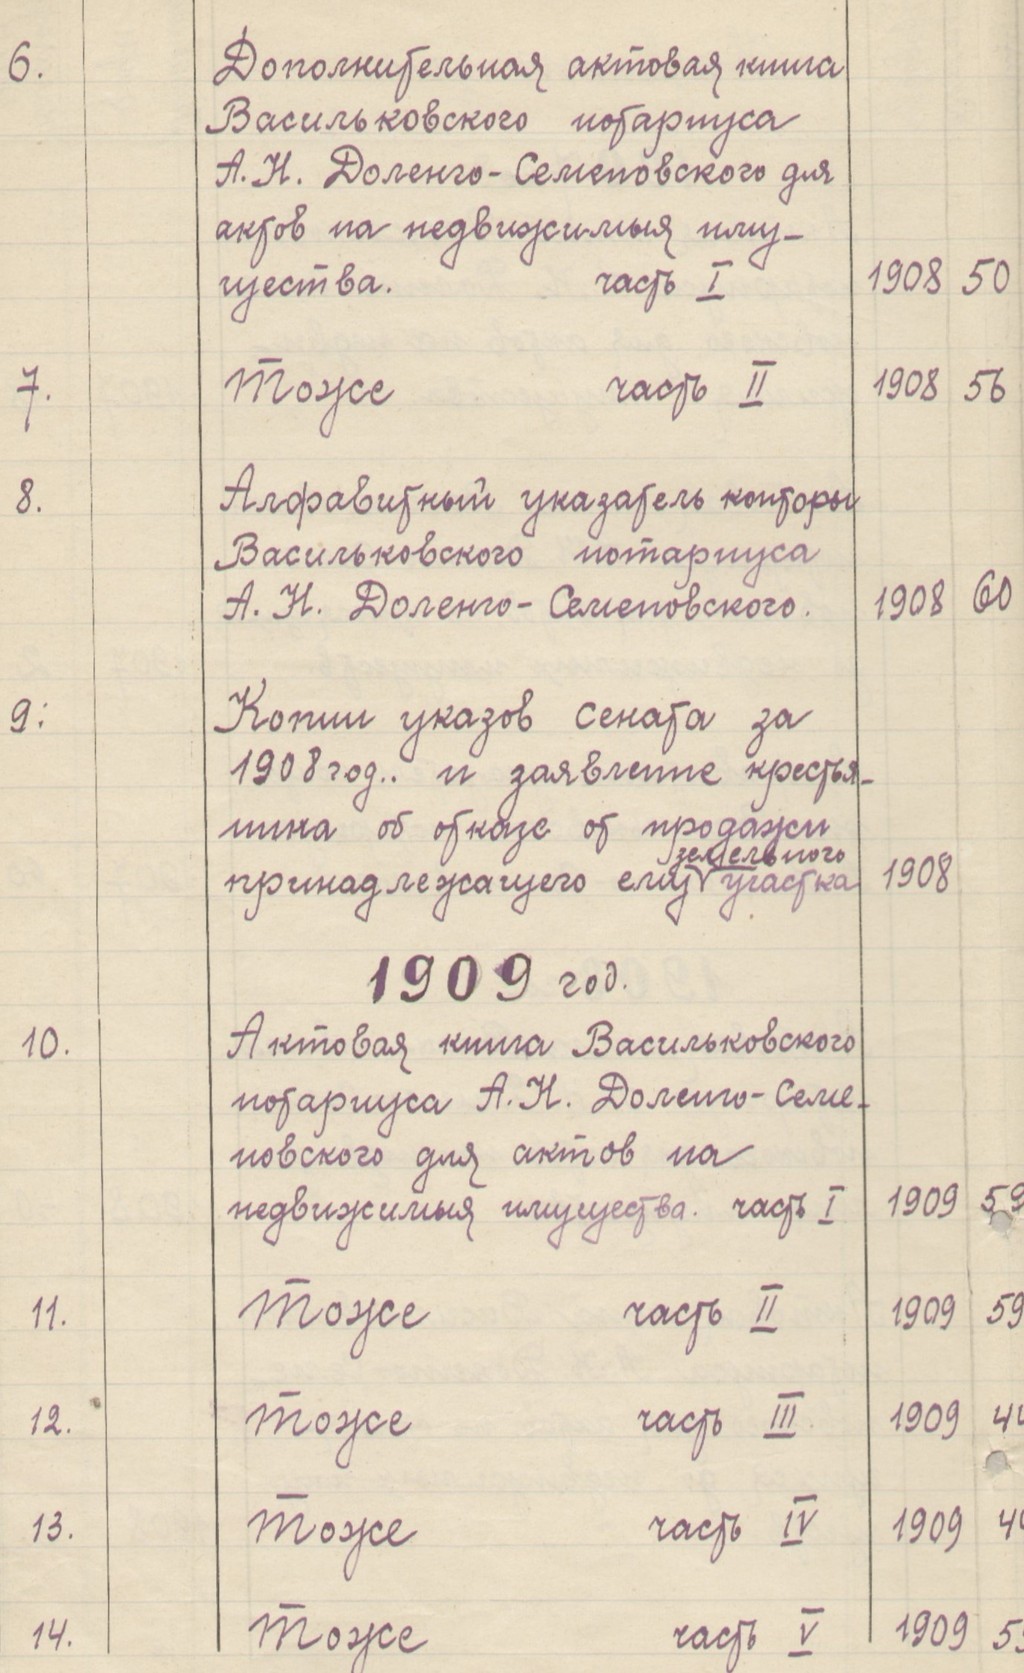 6. Дополнительная актовая книга
Васильковского нотариуса
А.Н. Доленго-Семеновского для
актов на недвижимыя иму-
щества. часть I 1908 50
7. Тоже часть II 1908 56
8. Алфавитный указатель конторы
Васильковского нотариуса
А.Н. Доленго-Семеновского. 1908 60
9. Копии указов сената за
1908 год.. и заявление крестья-
нина об отказе от продажи
земельного
принадлежащего ему V участка 1908
1909 год.
10. Актовая книга Васильковского
нотариуса А.Н. Доленго-Семе-
новского для актов на
недвижимыя имущества. часть I 1909 59
11. Тоже часть II 1909 59
12. Тоже часть III 1909
13. Тоже часть IV 1909
14. Тоже часть V 1909